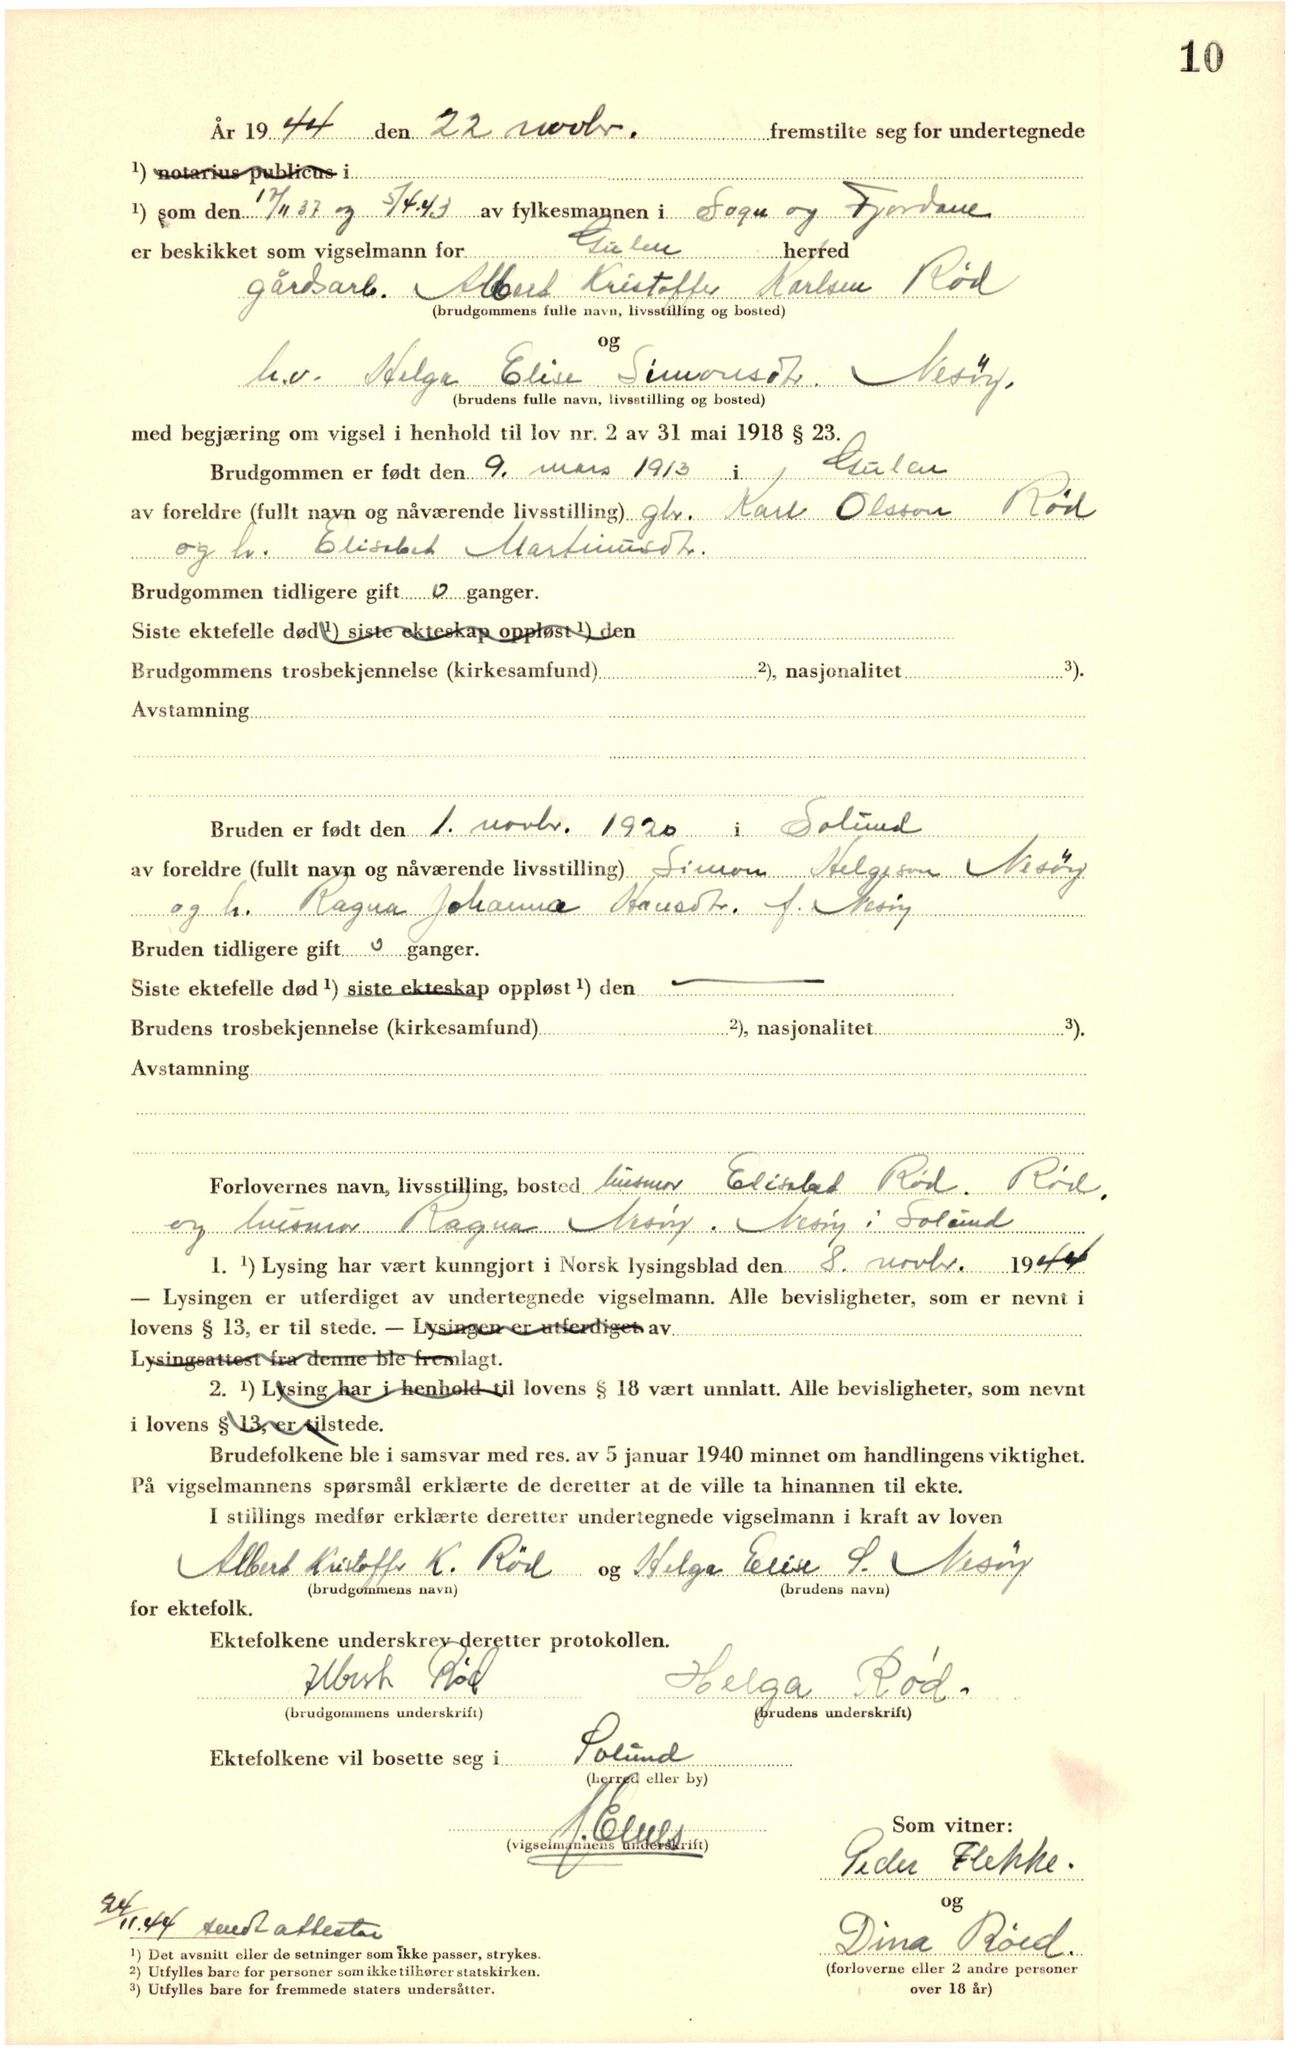 10
År 1944 den 22 novbr. fremstilte seg for undertegnede
¹) notarius publicus i
¹) som den 17/11 37 og 5/4.43 av fylkesmannen i Sogn og Fjordane
er beskikket som vigselmann for Gulen herred
gårdsarb. Albert Kristoffer Karlsen Rød
(brudgommens fulle navn, livsstilling og bosted)
og
h.v. Helga Elise Simonsdtr. Nesöy.
(brudens fulle navn, livsstilling og bosted)
med begjæring om vigsel i henhold til lov nr. 2 av 31 mai 1918 § 23.
Brudgommen er født den 9. mars 1913 i Gulen
av foreldre (fullt navn og nåværende livsstilling) gbr. Karl Olsson Rød
og h. Elisabet Martinusdtr.
Brudgommen tidligere gift 0 ganger.
Siste ektefelle død ¹) siste ekteskap oppløst ¹) den
Brudgommens trosbekjennelse (kirkesamfund) ²), nasjonalitet ³).
Avstamning
Bruden er født den 1. novbr. 1920 i Solund
av foreldre (fullt navn og nåværende livsstilling) Simon Helgeson Nesöy
og h. Ragna Johanna Hansdtr. f. Nesöy
Bruden tidligere gift 0 ganger.
Siste ektefelle død ¹) siste ekteskap oppløst ¹) den
Brudens trosbekjennelse (kirkesamfund) ²), nasjonalitet ³).
Avstamning
Forlovernes navn, livsstilling, bosted husmor Elisabet Rød. Rød.
og husmor Ragna Nesöy. Nesöy i Solund
1. ¹) Lysing har vært kunngjort i Norsk lysingsblad den 8. novbr. 1944
— Lysingen er utferdiget av undertegnede vigselmann. Alle bevisligheter, som er nevnt i
lovens § 13, er til stede. — Lysingen er utferdiget av
Lysingsattest fra denne ble fremlagt.
2. ¹) Lysing har i henhold til lovens § 18 vært unnlatt. Alle bevisligheter, som nevnt
i lovens § 13, er tilstede.
Brudefolkene ble i samsvar med res. av 5 januar 1940 minnet om handlingens viktighet.
På vigselmannens spørsmål erklærte de deretter at de ville ta hinannen til ekte.
I stillings medfør erklærte deretter undertegnede vigselmann i kraft av loven
Albert Kristoffer K. Rød og Helga Elise S. Nesöy
(brudgommens navn) (brudens navn)
for ektefolk.
Ektefolkene underskrev deretter protokollen.
Albert Rød Helga Rød.
(brudgommens underskrift) (brudens underskrift)
Ektefolkene vil bosette seg i Solund
(herred eller by)
(vigselmannens underskrift)
Som vitner:
Peder Flekke.
og
Dina Röed.
(forloverne eller 2 andre personer
over 18 år)
24/11.44 sendt attestar
¹) Det avsnitt eller de setninger som ikke passer, strykes.
²) Utfylles bare for personer som ikke tilhører statskirken.
³) Utfylles bare for fremmede staters undersåtter.